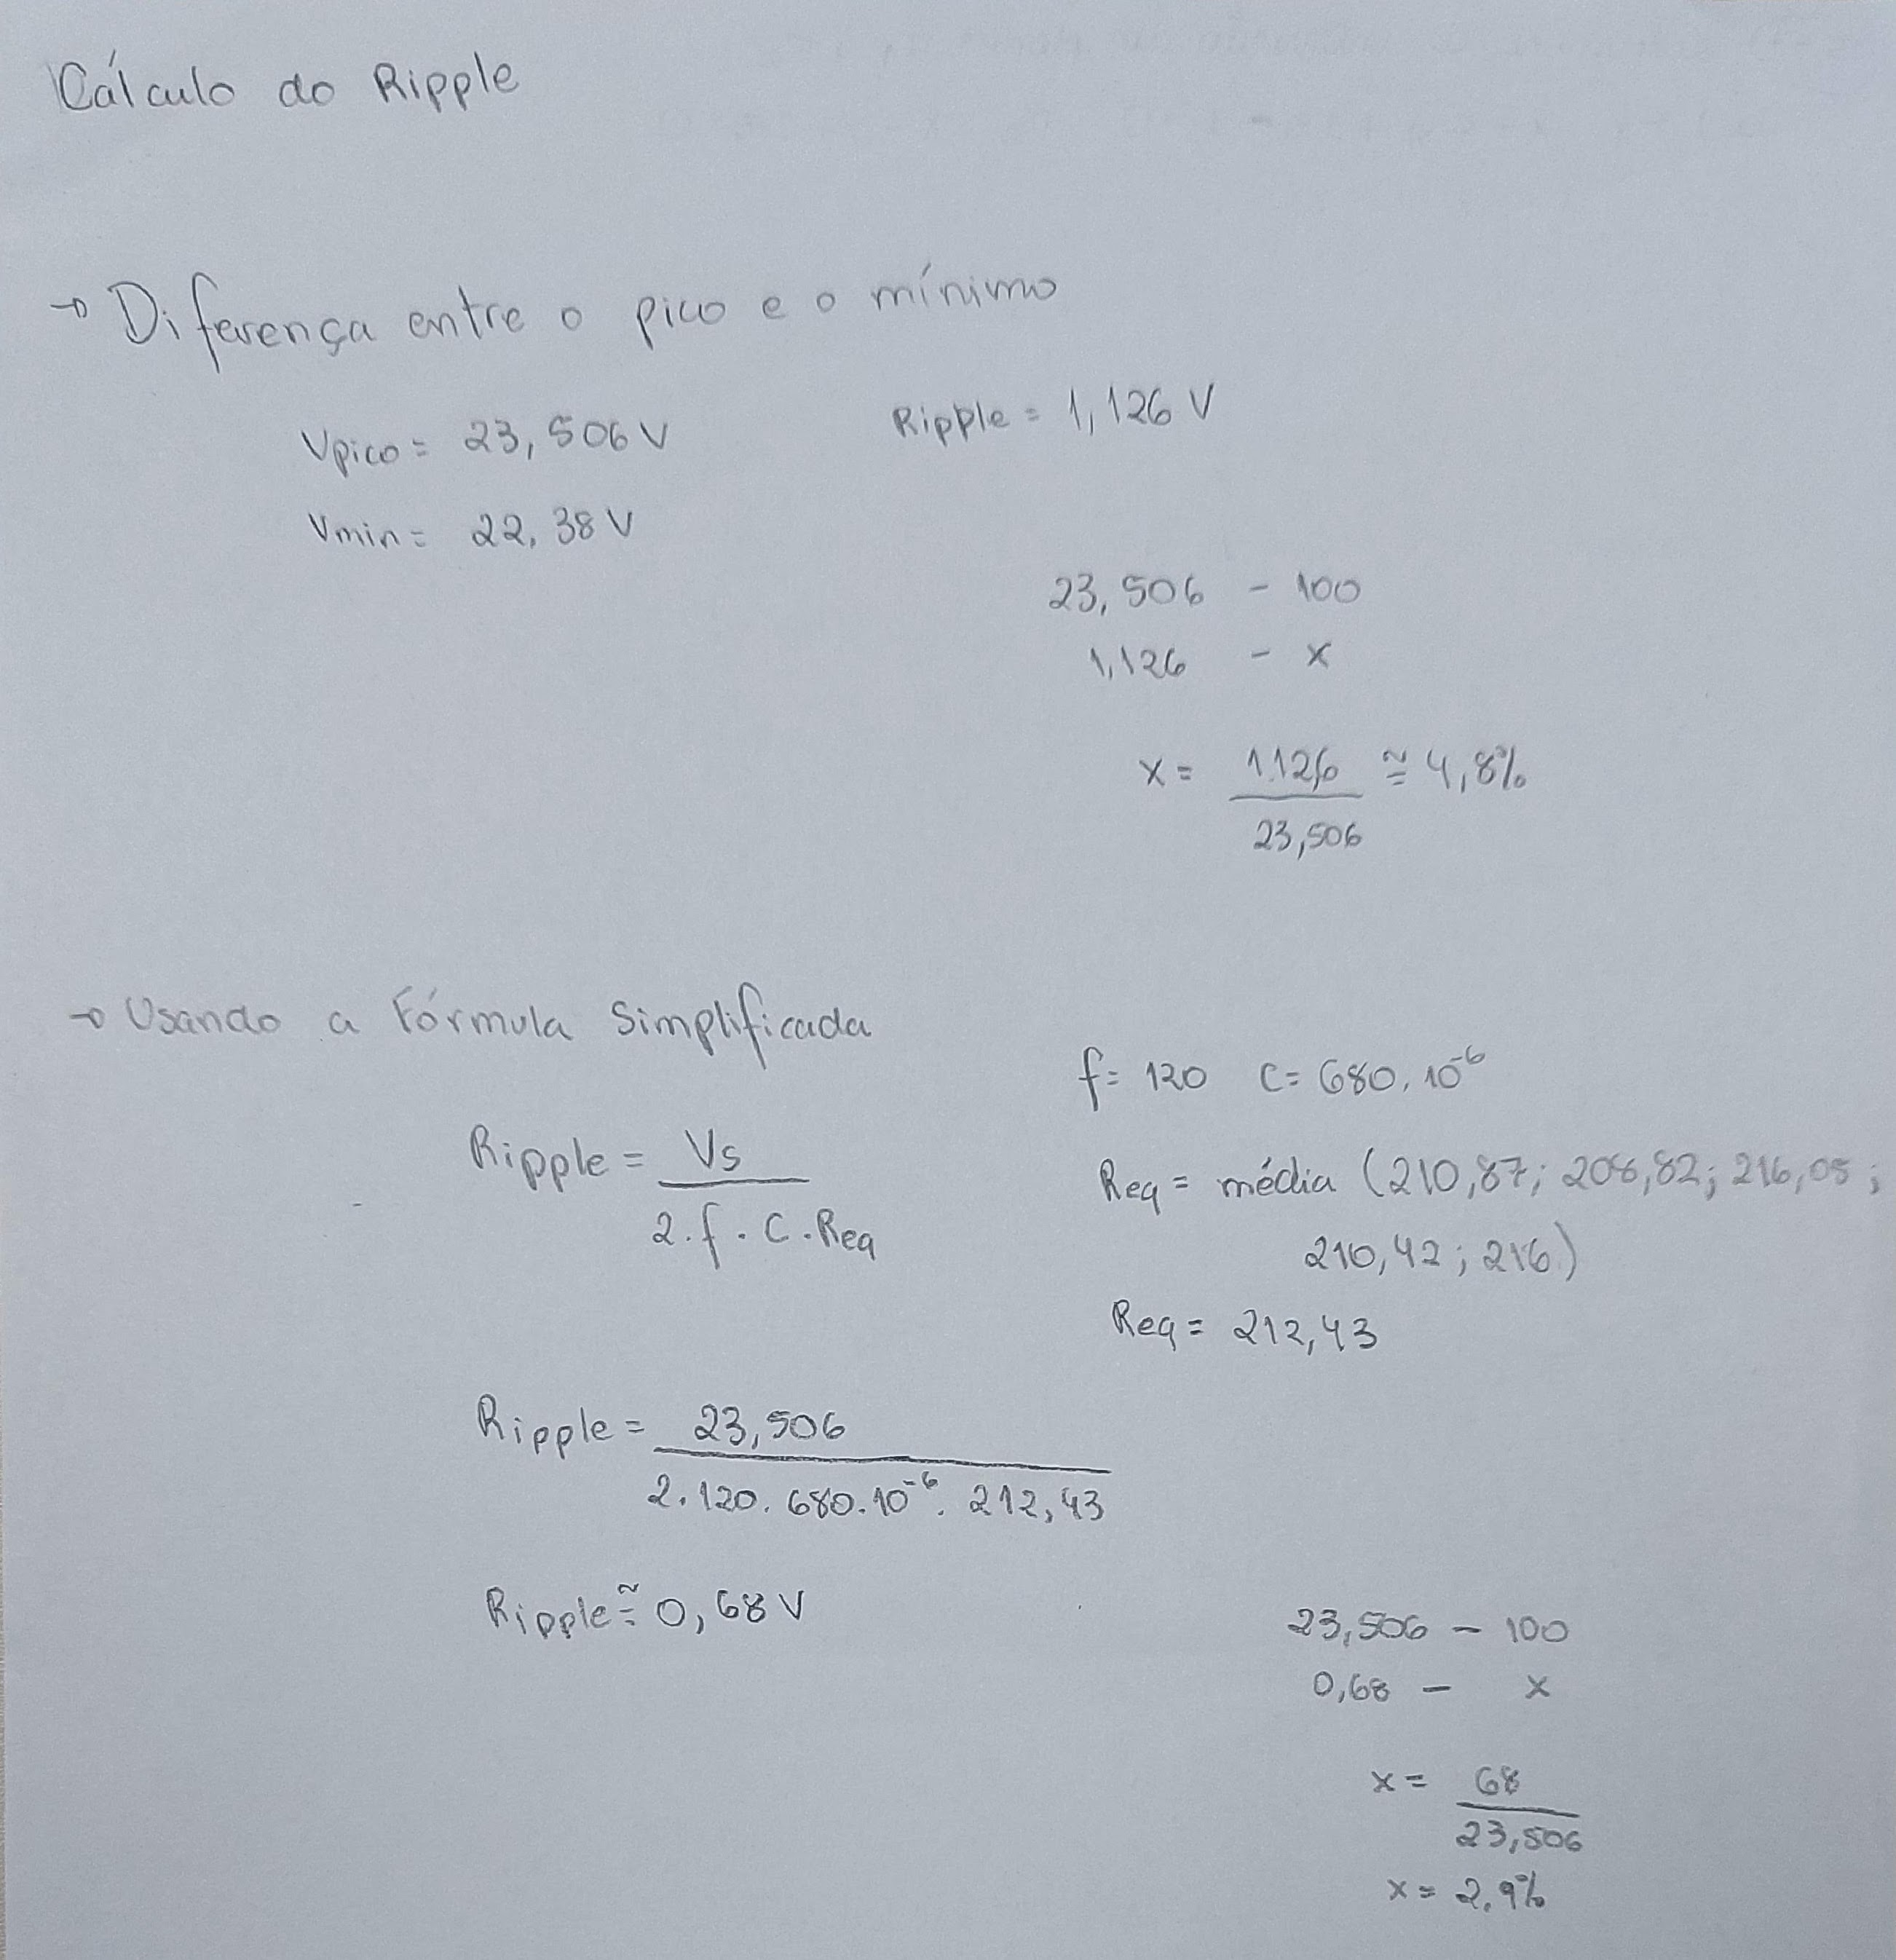 Cálculo do Ripple
→ Diferença entre o pico e o mínimo
Vpico = 23,506 V
Ripple = 1,126 V
Vmin = 22,38 V
23,506 - 100
1,126 - x
x = 112,6 / 23,506 ≅ 4,8%
→ Usando a Fórmula Simplificada
f = 120 C = 680.10⁻⁶
Ripple = Vs / 2.f.C.Req
Req = média (210,87; 208,82; 216,05;
210,42; 216)
Req = 212,43
Ripple = 23,506 / 2.120.680.10⁻⁶.212,43
Ripple ≅ 0,68 V
23,506 - 100
0,68 - x
x = 68 / 23,506
x = 2,9%